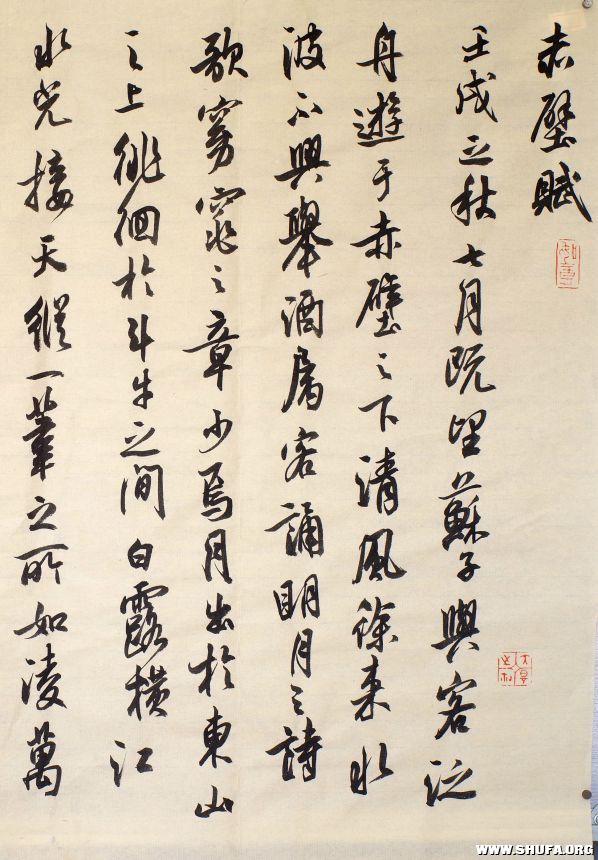 赤壁賦
壬戌之秋七月既望蘇子與客泛
舟遊于赤壁之下清風徐來水
波不興舉酒屬客誦明月之詩
歌窈窕之章少焉月出於東山
之上徘徊於斗牛之間白露橫江
水光接天縱一葦之所如凌萬
WWW.SHUFA.ORG